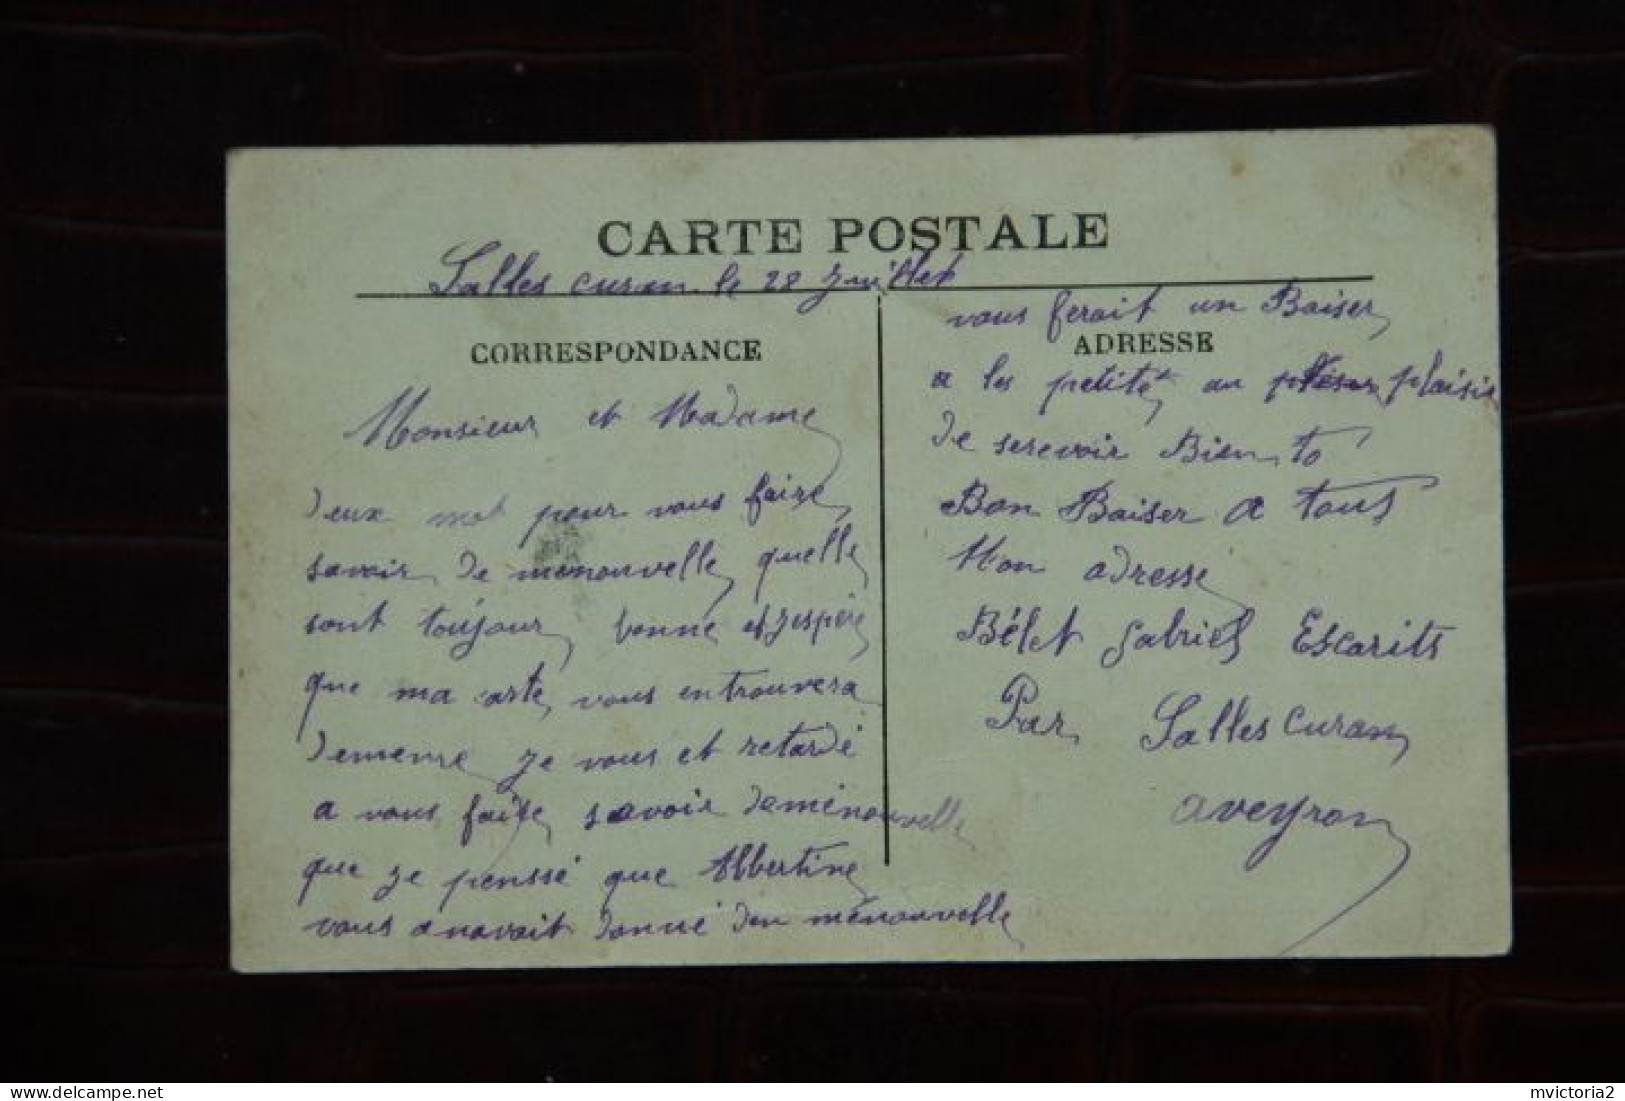 CARTE POSTALE
Salles curan le 28 Juillet
CORRESPONDANCE
Monsieur et Madame
deux mot pour vous faire
savoir de menouvelle quelle
sont toujour bonne et jespère
que ma carte vous entrouvera
dememe je vous et retardé
a vous faire savoir deménouvelle
que je penssé que Albertine
vous anavait donné den ménouvelle
vous ferait un Baiser
ADRESSE
a les petite au plaisir
de serevoir Bien to
Bon Baiser a tous
Mon adresse
Bélet Gabriel Escarits
Par Salles curan
aveyron
mvictoria2